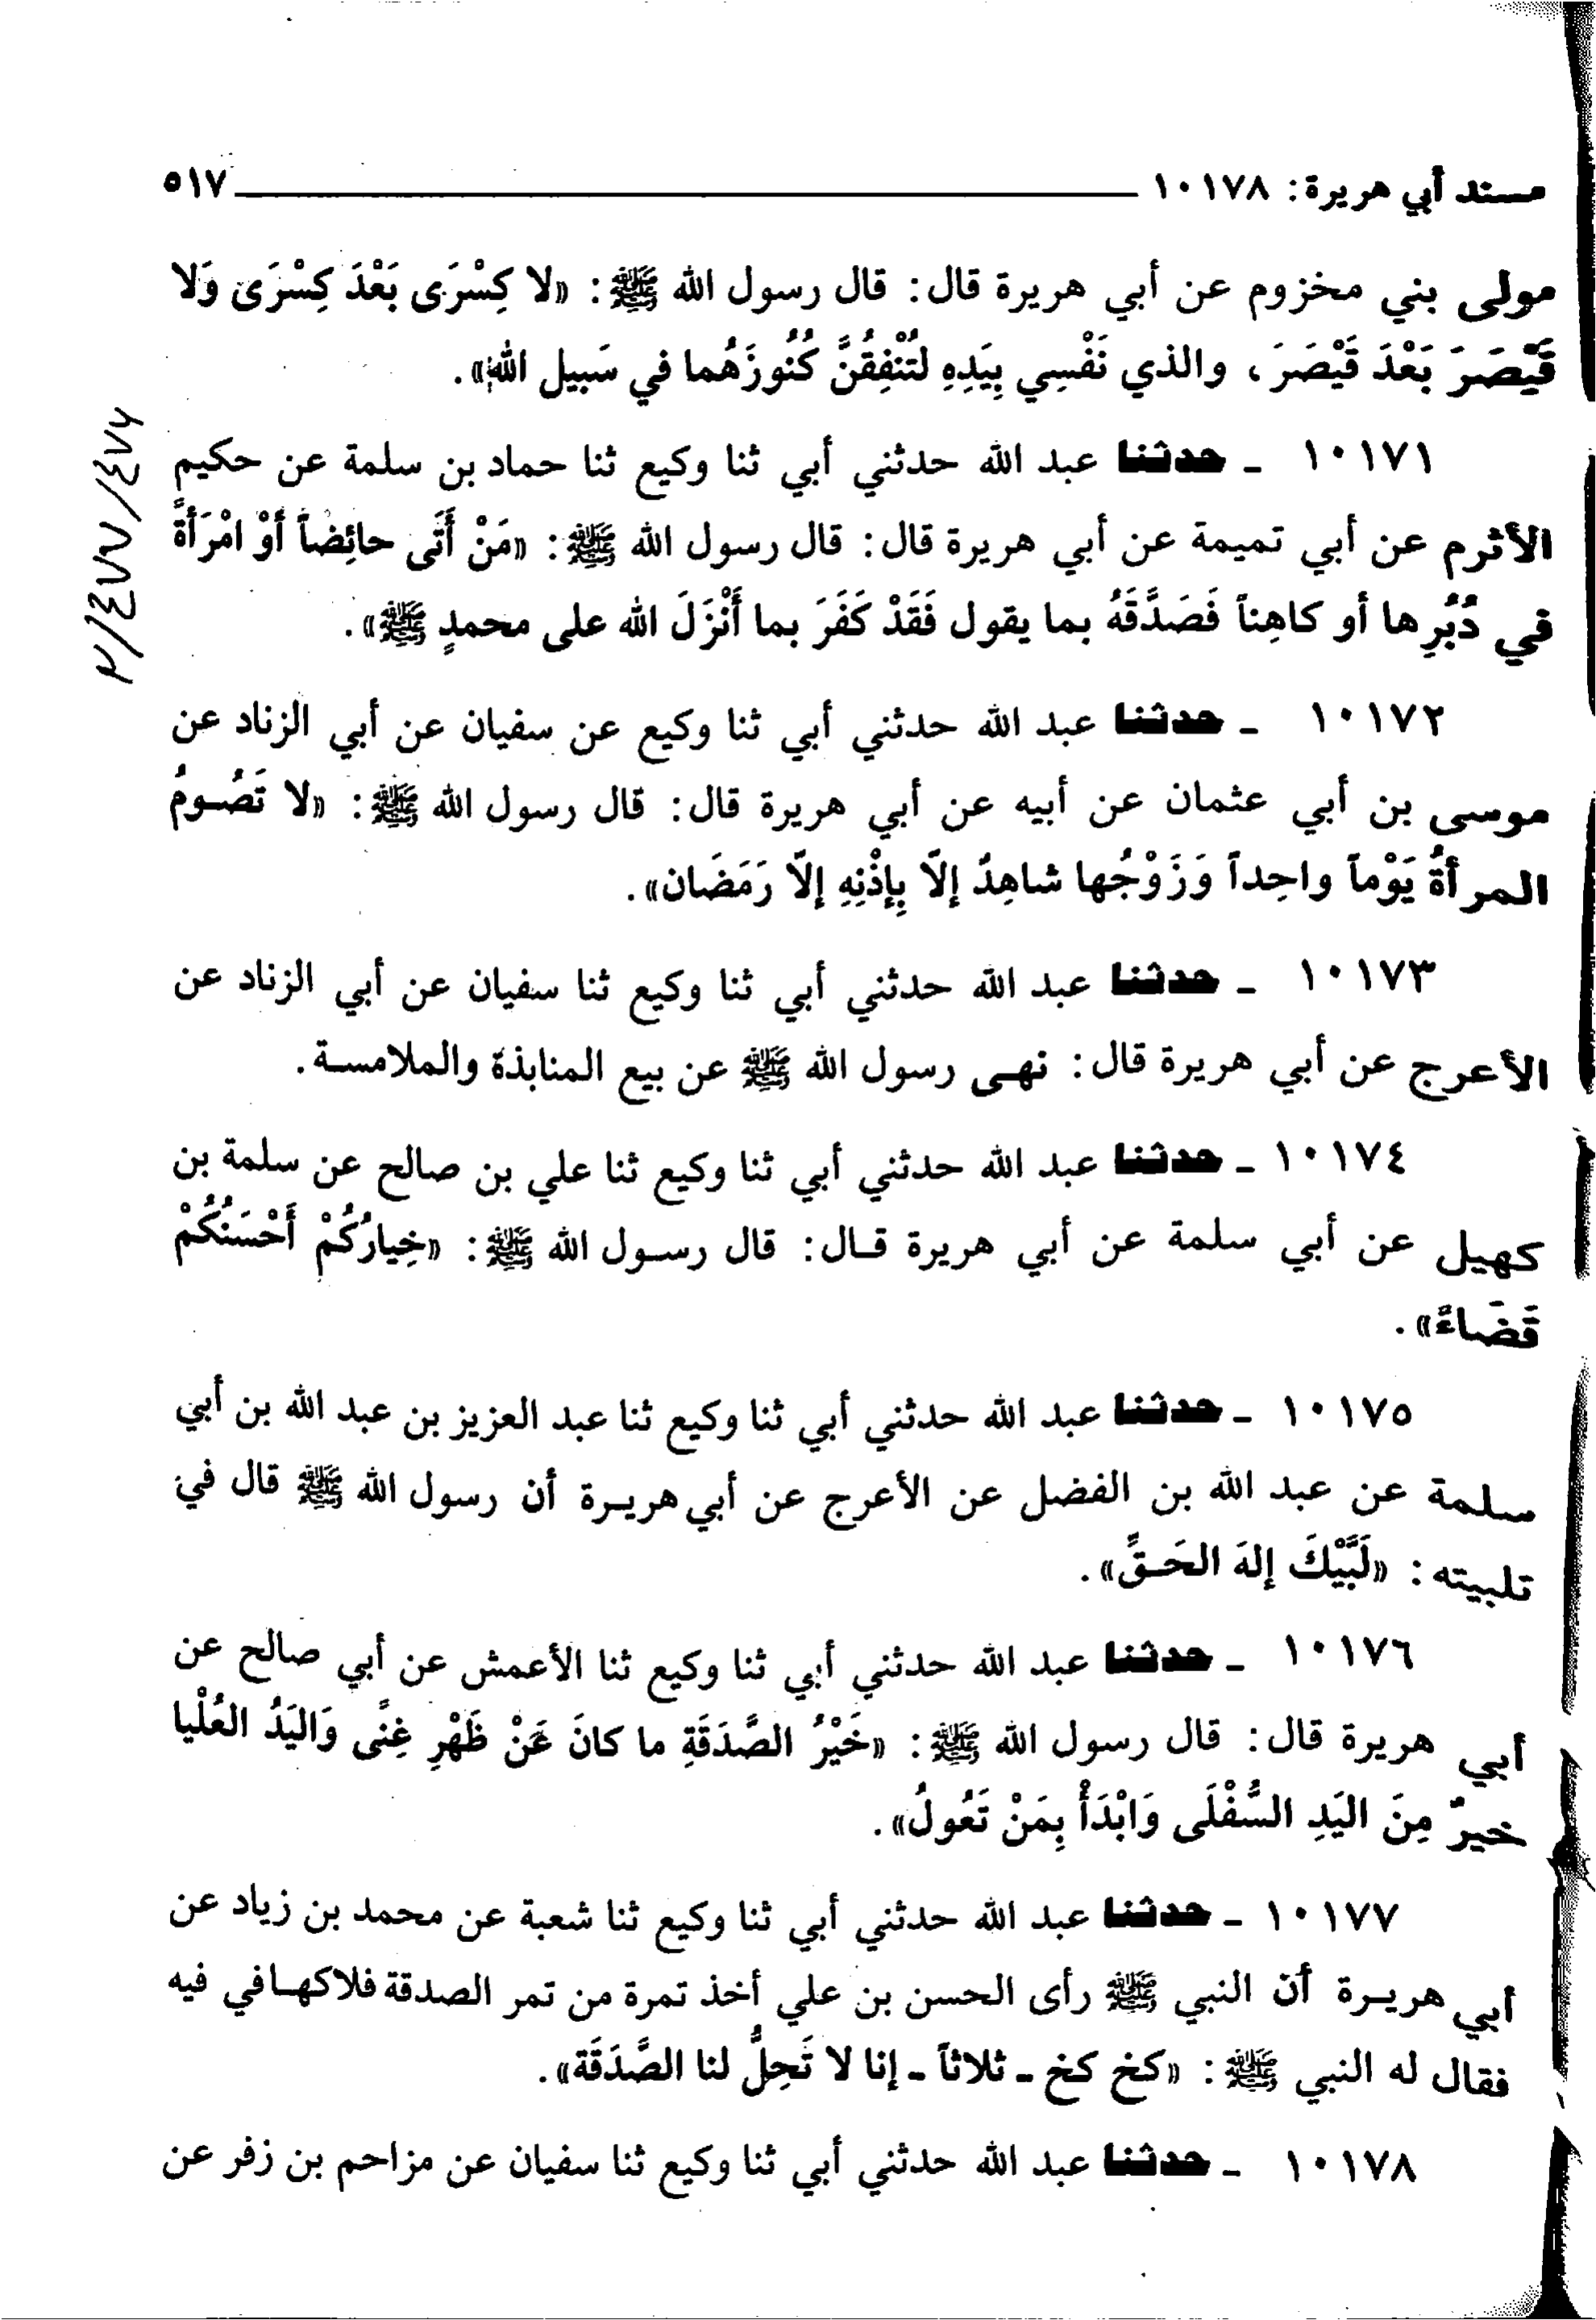 مسند أبي هريرة: ١٠١٧٨ ٥١٧
مولى بني مخزوم عن أبي هريرة قال: قال رسول الله ﷺ: «لا كِسْرَى بَعْدَ كِسْرَى وَلا
قَيْصَرَ بَعْدَ قَيْصَرَ، والذي نَفْسِي بِيَدِهِ لتُنْفِقُنَّ كُنُوزَهُما في سَبِيل الله».
١٠١٧١ - حدثنا عبد الله حدثني أبي ثنا وكيع ثنا حماد بن سلمة عن حكيم
الأثرم عن أبي تميمة عن أبي هريرة قال: قال رسول الله ﷺ: «مَنْ أَتَى حائِضاً أوْ امْرَأةً
في دُبُرِها أو كاهِناً فَصَدَّقَهُ بما يقول فَقَدْ كَفَرَ بما أَنْزَلَ الله على محمدٍ ﷺ».
١٠١٧٢ - حدثنا عبد الله حدثني أبي ثنا وكيع عن سفيان عن أبي الزناد عن
موسى بن أبي عثمان عن أبيه عن أبي هريرة قال: قال رسول الله ﷺ: «لا تَصُومُ
المرأةُ يَوْماً واحِداً وَزَوْجُها شاهِدٌ إلّا بِإذْنِهِ إلّا رَمَضَان».
١٠١٧٣ - حدثنا عبد الله حدثني أبي ثنا وكيع ثنا سفيان عن أبي الزناد عن
الأعرج عن أبي هريرة قال: نهى رسول الله ﷺ عن بيع المنابذة والملامسة.
١٠١٧٤ - حدثنا عبد الله حدثني أبي ثنا وكيع ثنا علي بن صالح عن سلمة بن
كهيل عن أبي سلمة عن أبي هريرة قال: قال رسول الله ﷺ: «خِيارُكُمْ أَحْسَنُكُمْ
قَضَاءً».
١٠١٧٥ - حدثنا عبد الله حدثني أبي ثنا وكيع ثنا عبد العزيز بن عبد الله بن أبي
سلمة عن عبد الله بن الفضل عن الأعرج عن أبي هريرة أن رسول الله ﷺ قال في
تلبيته: «لَبَّيْكَ إلهَ الحَقِّ».
١٠١٧٦ - حدثنا عبد الله حدثني أبي ثنا وكيع ثنا الأعمش عن أبي صالح عن
أبي هريرة قال: قال رسول الله ﷺ: «خَيْرُ الصَّدَقَةِ ما كانَ عَنْ ظَهْرِ غِنًى وَاليَدُ العُلْيا
خيرٌ مِنَ اليَدِ السُّفْلَى وَابْدَأْ بِمَنْ تَعُولُ».
١٠١٧٧ - حدثنا عبد الله حدثني أبي ثنا وكيع ثنا شعبة عن محمد بن زياد عن
أبي هريرة أن النبي ﷺ رأى الحسن بن علي أخذ تمرة من تمر الصدقة فلاكها في فيه
فقال له النبي ﷺ: «كخ كخ - ثلاثاً - إنا لا تَحِلُّ لنا الصَّدَقَة».
١٠١٧٨ - حدثنا عبد الله حدثني أبي ثنا وكيع ثنا سفيان عن مزاحم بن زفر عن
٢/٤٧٧/٤٧٦